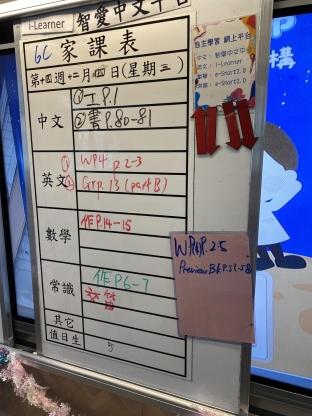 i-Learner 智愛中文平台
6C 家課表
第十四週十二月四日(星期三)
中文
①工P.1
②書P.80-81
英文
① WP4 P2-3
② Grp.13 (part B)
數學
作P.14-15
常識
作P.6-7
其它
值日生
5
自主學習 網上平台
中文: 智愛中文平台
英文: i-Learner
數學: e-Smart2.0
常識: e-Smart2.0
P.25
Preview Bk P.57-58
構